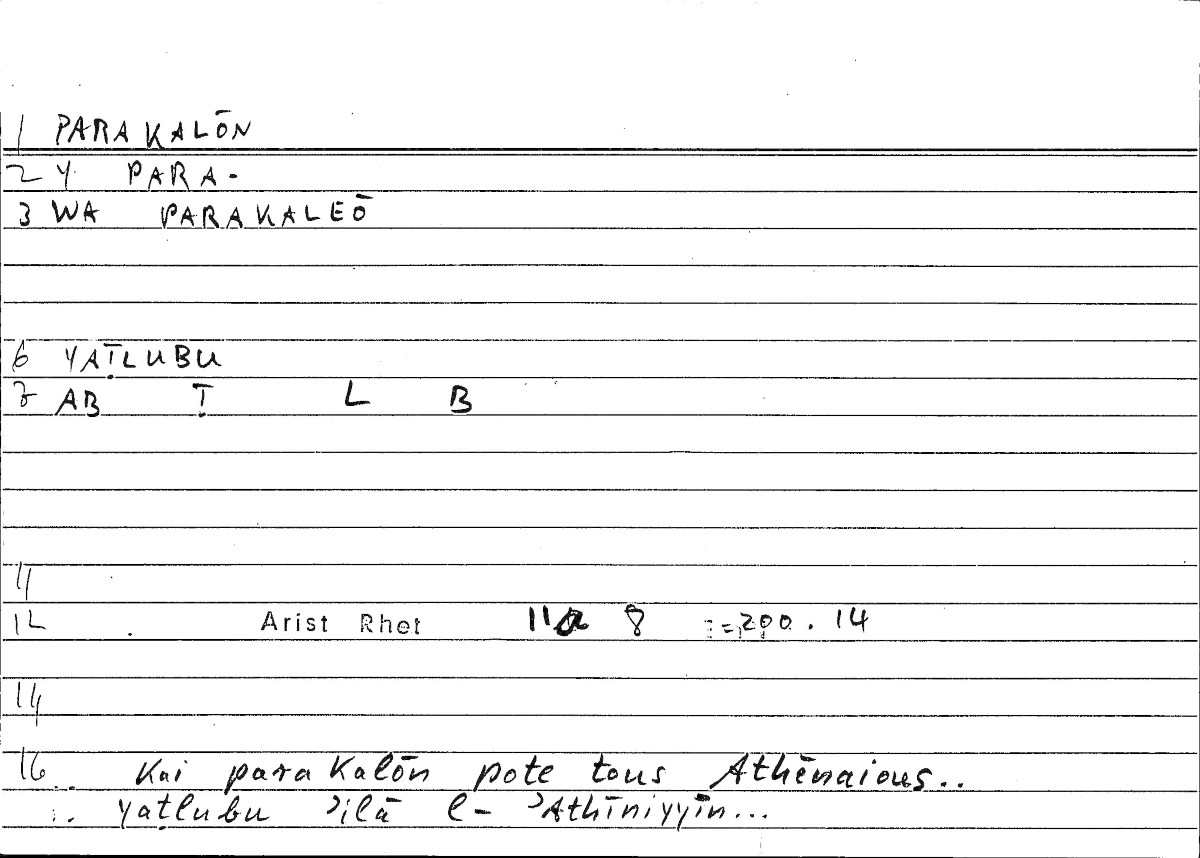 1 PARAKALŌN
2 Y PARA-
3 WA PARAKALEŌ
6 YAṬLUBU
7 AB Ṭ L B
11
12 Arist Rhet 11a 8 = 200.14
14
16 Kai parakalōn pote tous Athēnaious..
yaṭlubu ʾilā l- ʾAthīniyyīn...